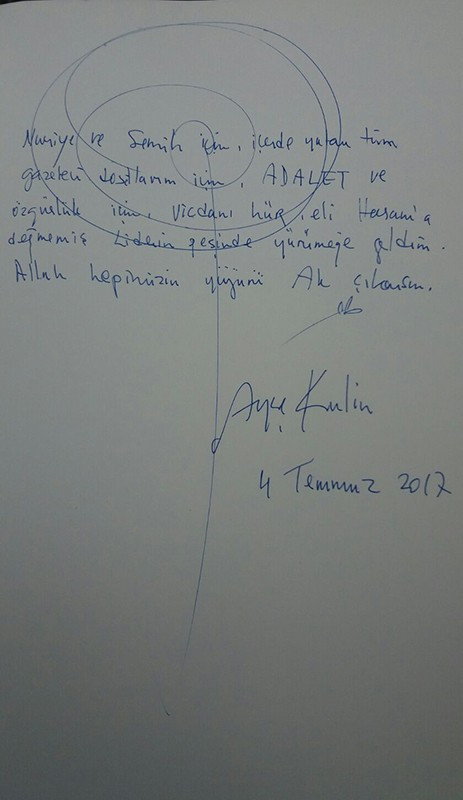 Nuriye ve Semih için, içerde yatan tüm
gazeteci dostlarım için, ADALET ve
özgürlük için, Vicdanı hür, eli Haram'a
değmemiş Liderin peşinde yürümeğe geldim.
Allah hepimizin yüzünü Ak çıkarsın.
Ayşe Kulin
4 Temmuz 2017